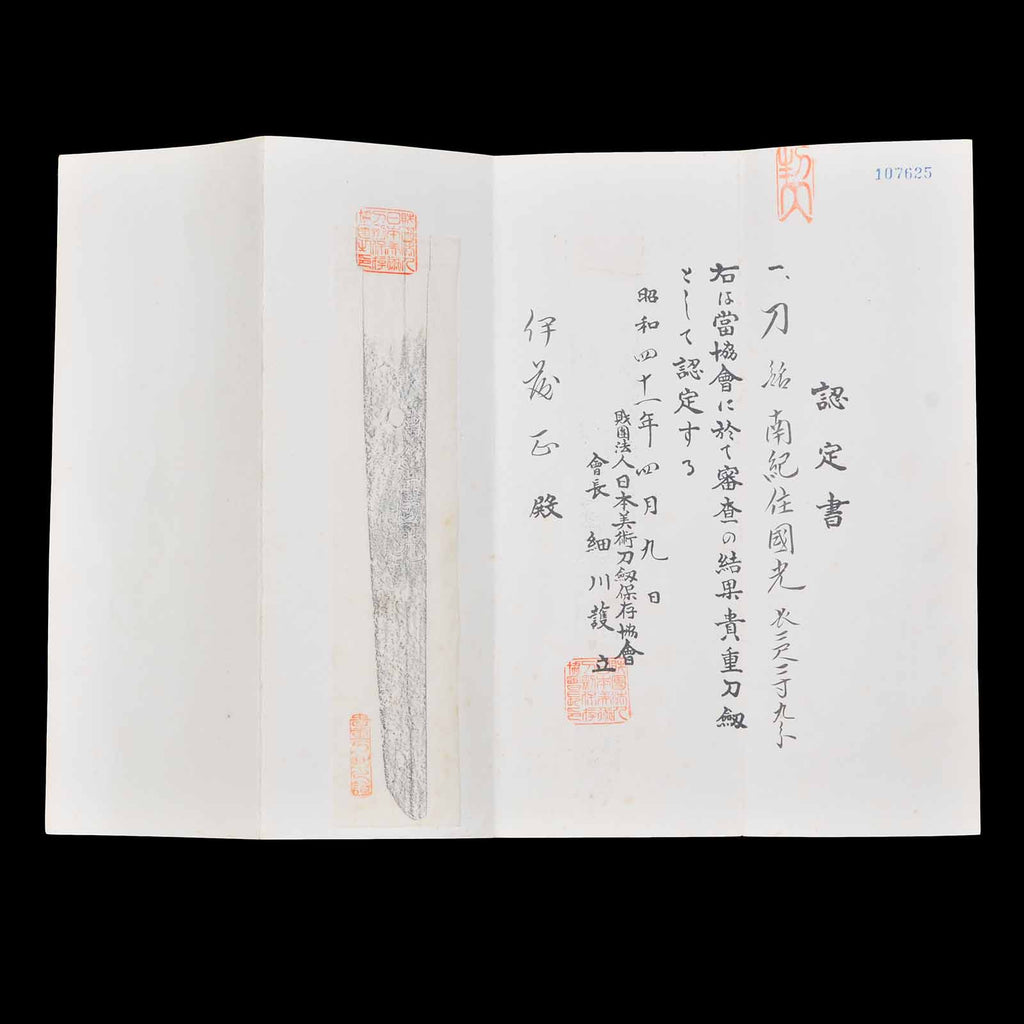 107625
認定書
一、刀 銘 南紀住國光 長二尺二寸九分
右は當協會に於て審査の結果貴重刀劔
として認定する
昭和四十一年四月九日
財團法人日本美術刀劔保存協會
會長 細川護立
正殿